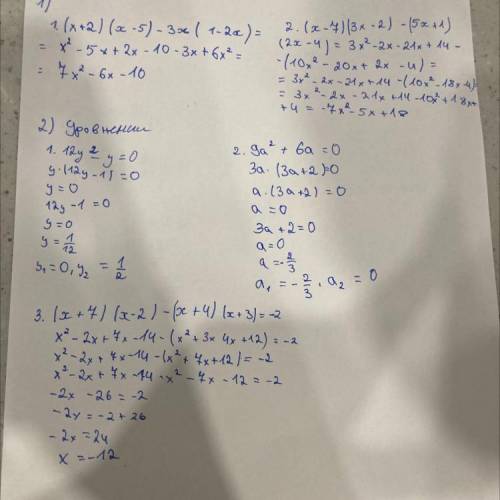 1)
1. (x+2) (x-5) - 3x (1-2x) =
= x² - 5x + 2x - 10 - 3x + 6x² =
= 7x² - 6x - 10
2. (x-7)(3x-2) - (5x+1)
(2x-4) = 3x² - 2x - 21x + 14 -
-(10x² - 20x + 2x - 4) =
= 3x² - 2x - 21x + 14 - (10x² - 18x - 4)
= 3x² - 2x - 21x + 14 - 10x² + 18x +
+4 = -7x² - 5x + 18
2) Уровнении
1. 12y² - y = 0
y · (12y - 1) = 0
y = 0
12y - 1 = 0
y = 0
y = 1/12
y₁ = 0, y₂ = 1/2
2. 9a² + 6a = 0
3a · (3a + 2) = 0
a · (3a + 2) = 0
a = 0
3a + 2 = 0
a = 0
a = -2/3
a₁ = -2/3, a₂ = 0
3. (x+7) (x-2) - (x+4) (x+3) = -2
x² - 2x + 7x - 14 - (x² + 3x 4x + 12) = -2
x² - 2x + 7x - 14 - (x² + 7x + 12) = -2
x² - 2x + 7x - 14 - x² - 7x - 12 = -2
-2x - 26 = -2
-2x = -2 + 26
-2x = 24
x = -12